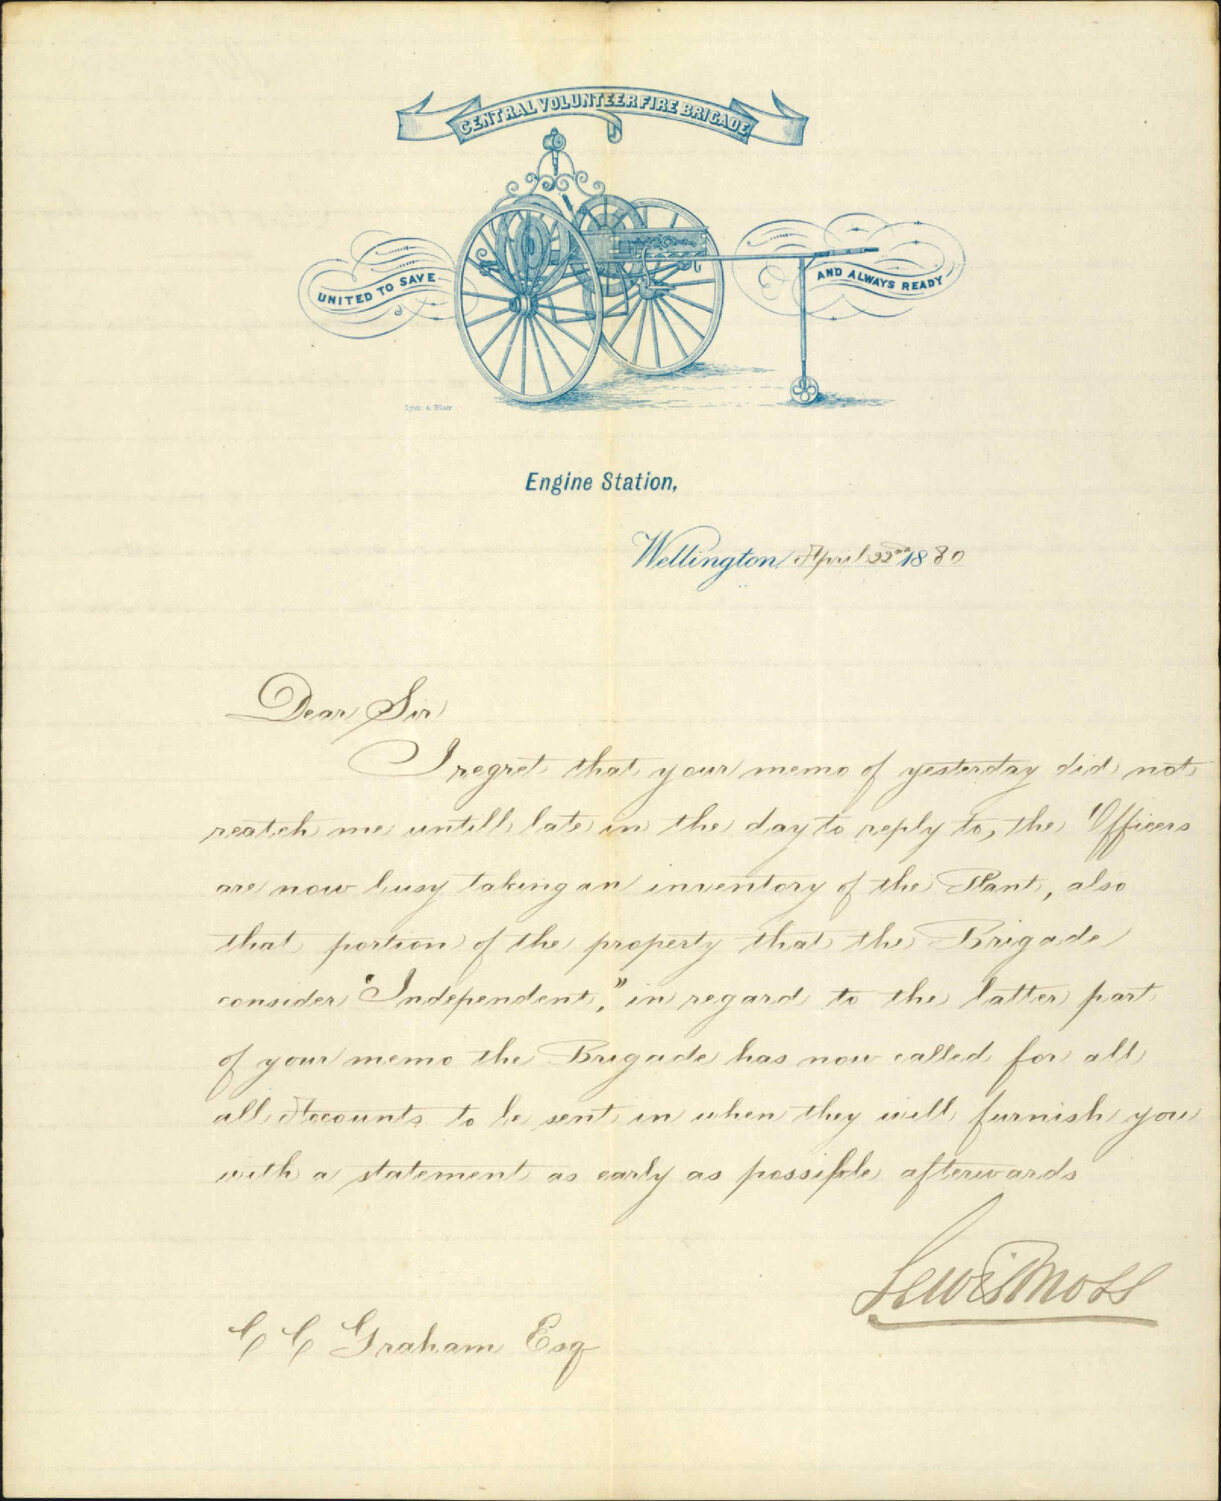 CENTRAL VOLUNTEER FIRE BRIGADE
UNITED TO SAVE
AND ALWAYS READY
Lyon & Blair
Engine Station,
Wellington April 22nd 1880
Dear Sir
I regret that your memo of yesterday did not
reatch me untill late in the day to reply to, the Officers
are now busy taking an inventory of the Plant, also
that portion of the property that the Brigade
consider "Independent," in regard to the latter part
of your memo the Brigade has now called for all
all Accounts to be sent in when they will furnish you
with a statement as early as possible afterwards
Lewis Moss
C C Graham Esq